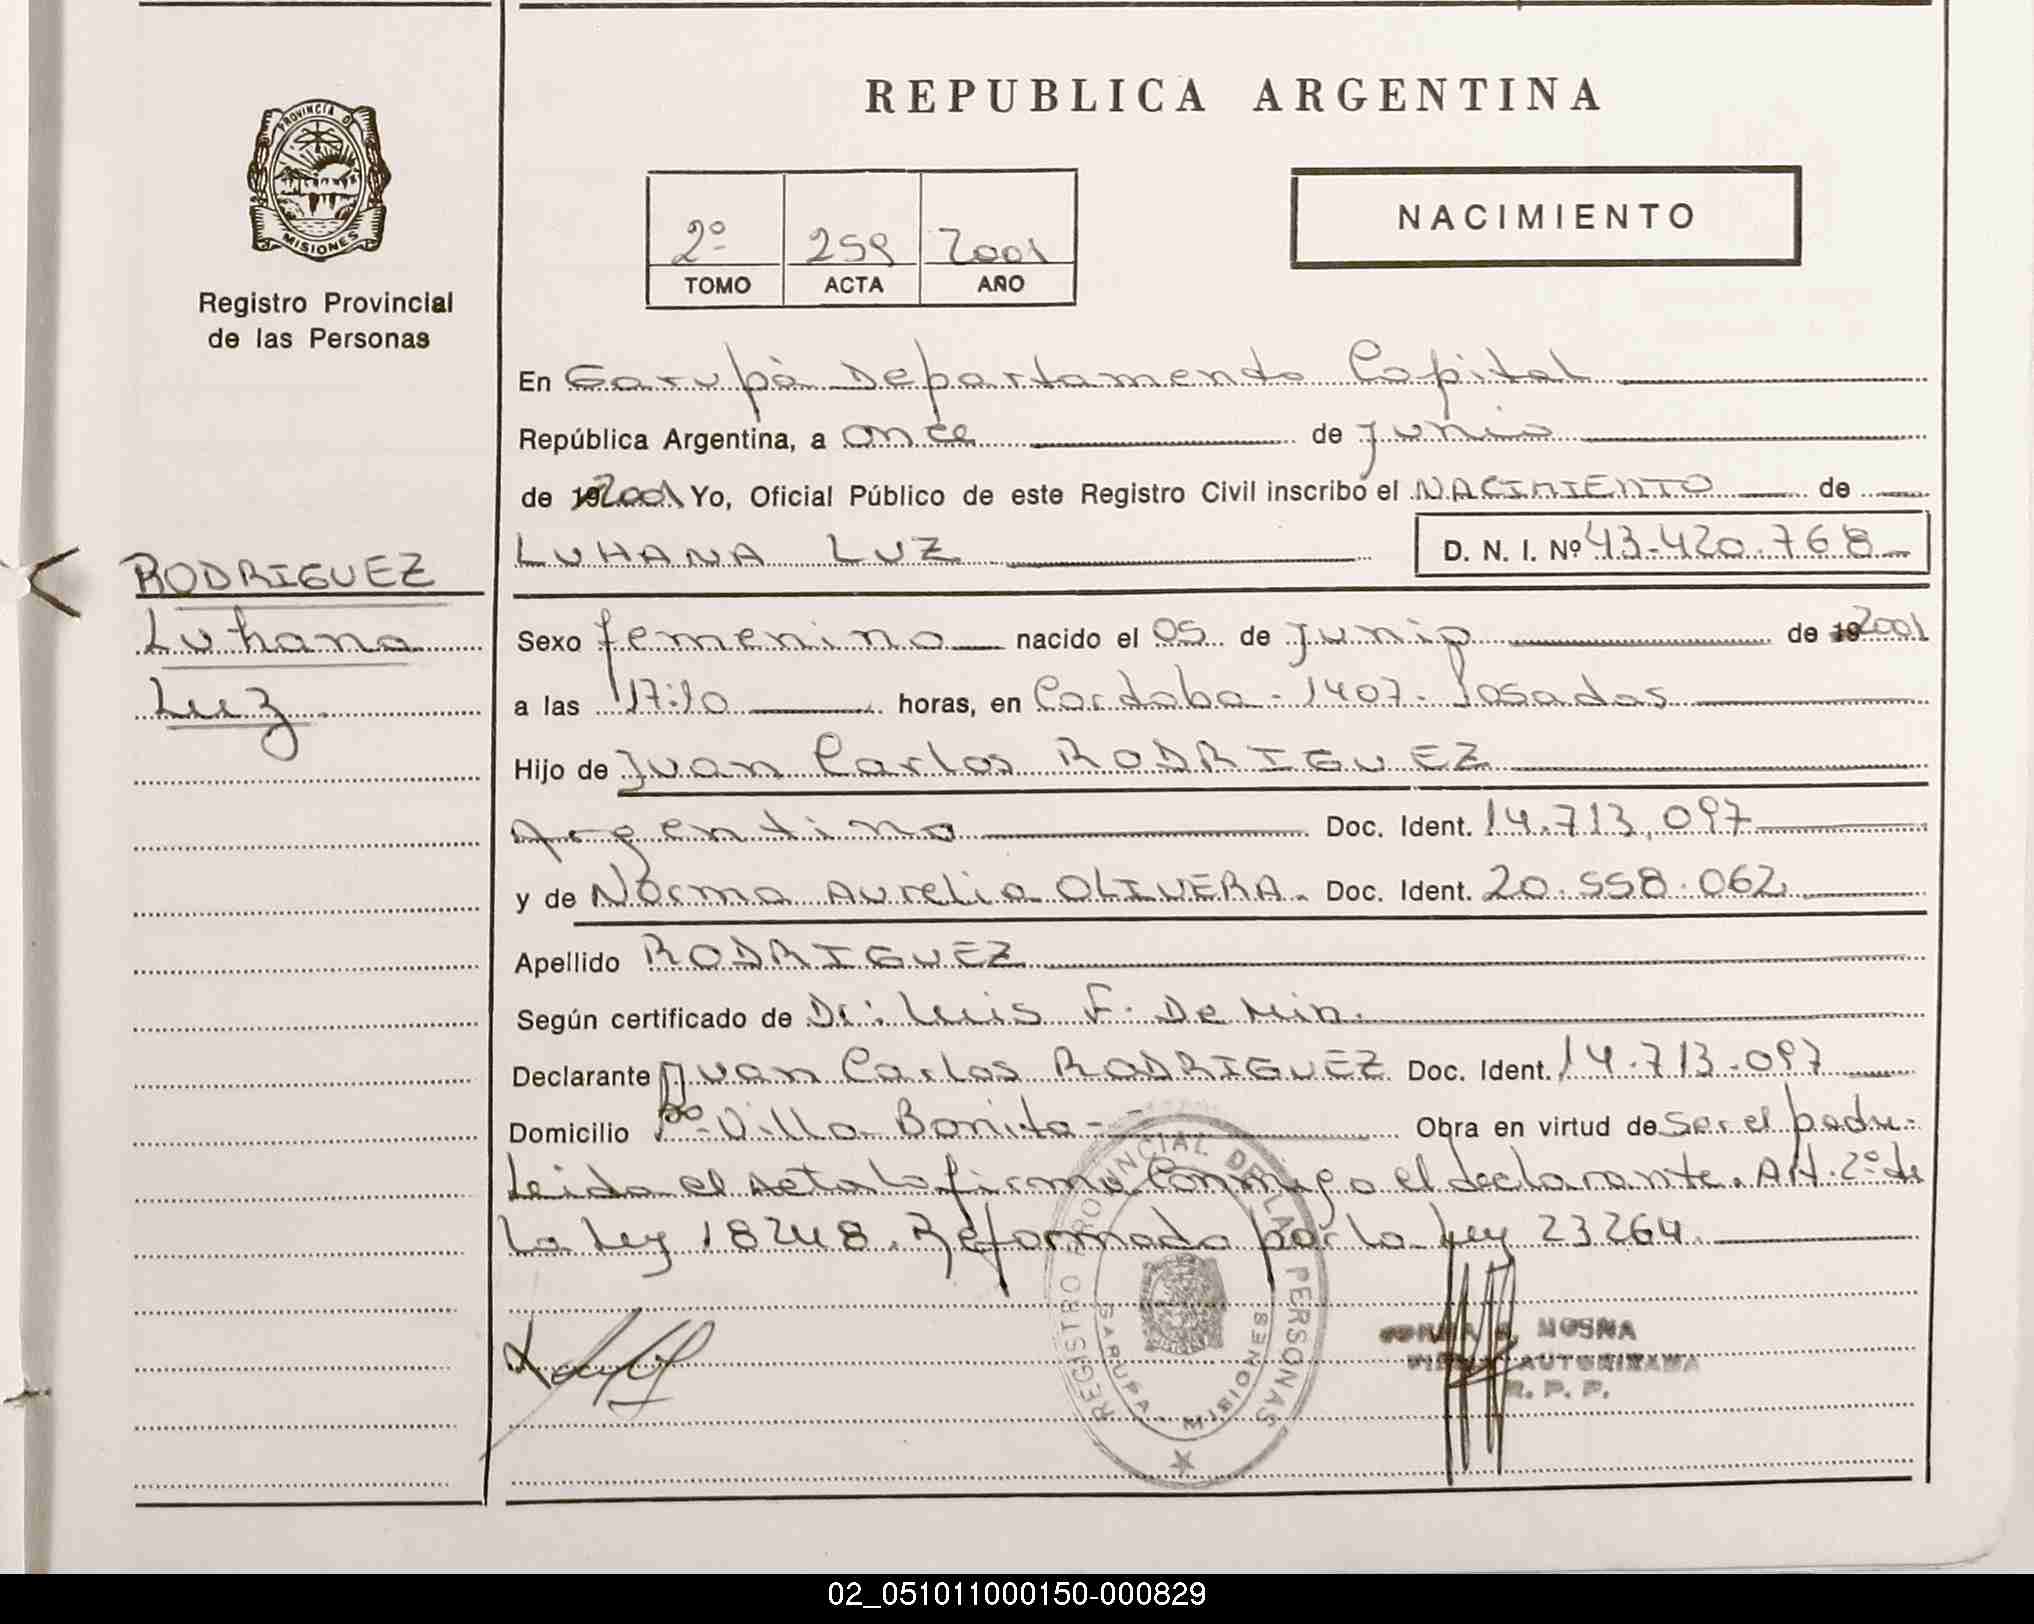 REPUBLICA ARGENTINA
PROVINCIA D
MISIONES
Registro Provincial
de las Personas
NACIMIENTO
2º 259 2001
TOMO ACTA AÑO
En Garupá Departamento Capital
República Argentina, a once de Junio
de 2001 Yo, Oficial Público de este Registro Civil inscribo el NACIMIENTO de
LUHANA LUZ D. N. I. Nº 43-420.768
RODRIGUEZ
Luhana
Luz.
Sexo femenino nacido el 05 de Junio de 2001
a las 17:10 horas, en Cordoba - 1407 - Posadas
Hijo de Juan Carlos RODRIGUEZ
Argentino Doc. Ident. 14.713.097
y de Norma Aurelia OLIVERA. Doc. Ident. 20.558.062
Apellido RODRIGUEZ
Según certificado de Dr: Luis F. De
Declarante Juan Carlos RODRIGUEZ Doc. Ident. 14.713.097
Domicilio Bº Villa Bonita - Obra en virtud de Ser el padre.
Leida el acta la firma Conmigo el declarante. Art. 2º de
La Ley 18248. Reformada por la Ley 23264.
REGISTRO PROVINCIAL DE LAS PERSONAS
GARUPA - MISIONES
MOSNA
AUTORIZADA
R. P. P.
02_051011000150-000829